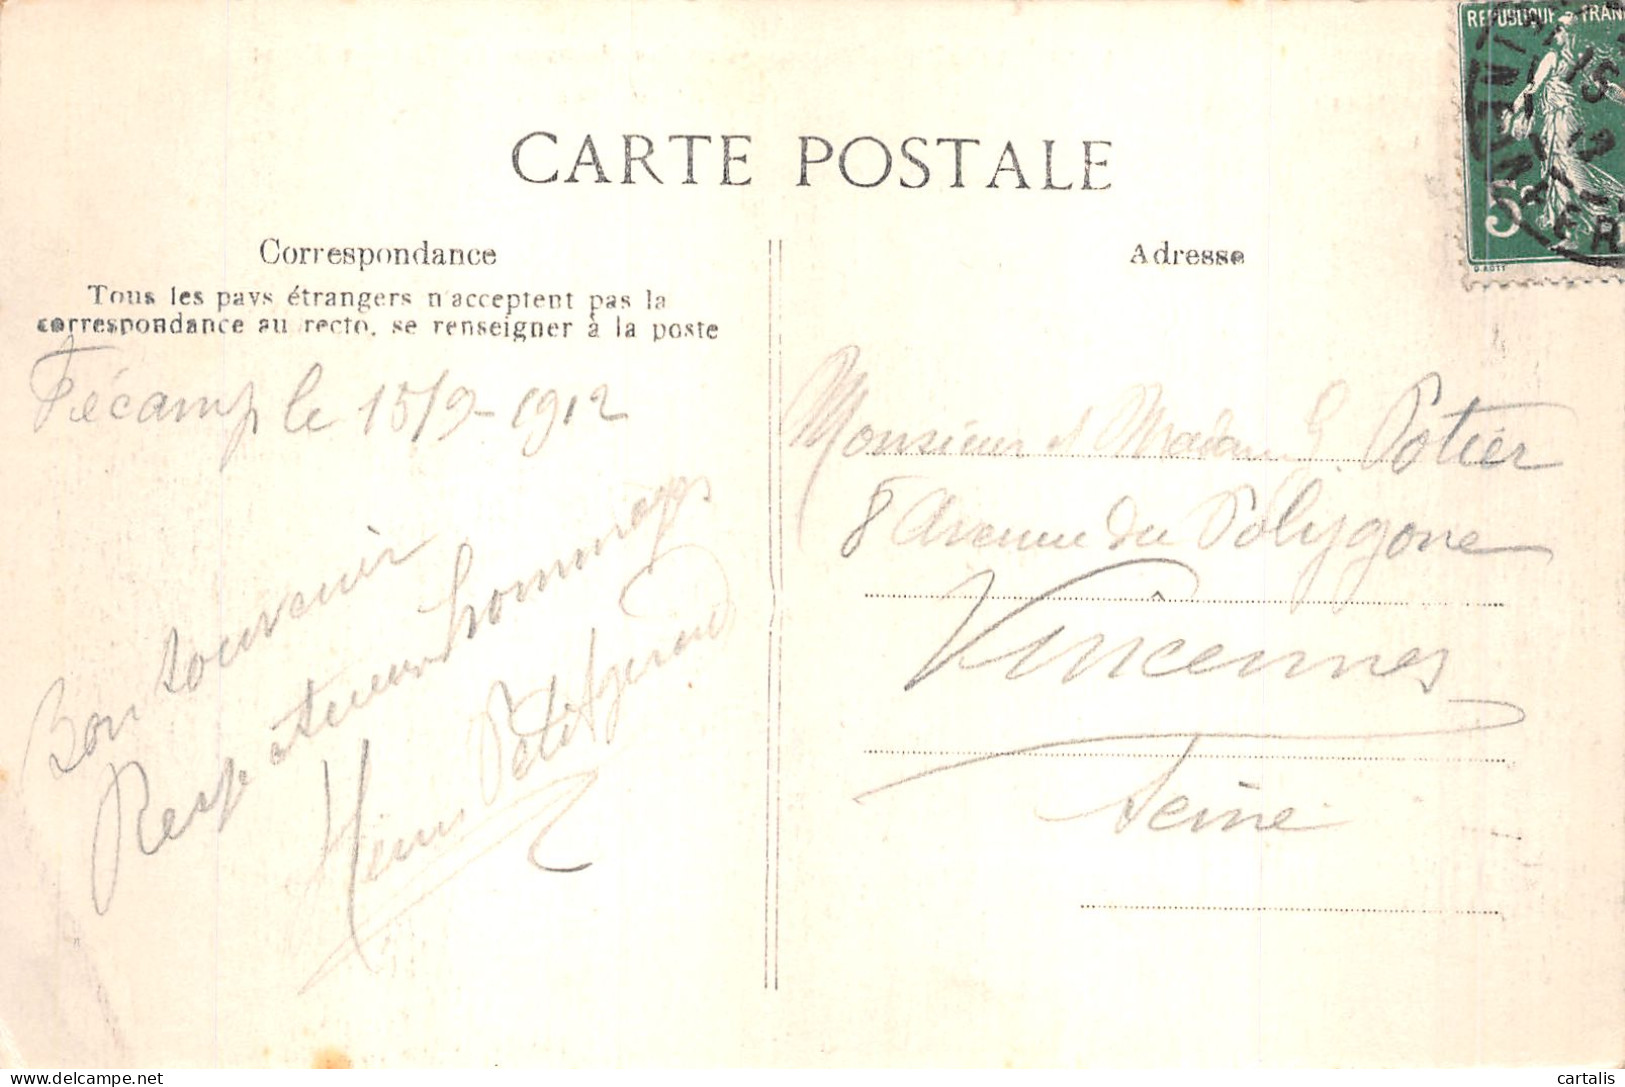 CARTE POSTALE
Correspondance
Tous les pays étrangers n'acceptent pas la
correspondance au recto, se renseigner à la poste
Fécamp le 15/9-1912
Bon souvenir
Respectueux hommages
Henri Petit
Adresse
Monsieur et Madame G. Potier
8 Avenue du Polygone
Vincennes
Seine
REPUBLIQUE FRAN
5c
15
cartalis